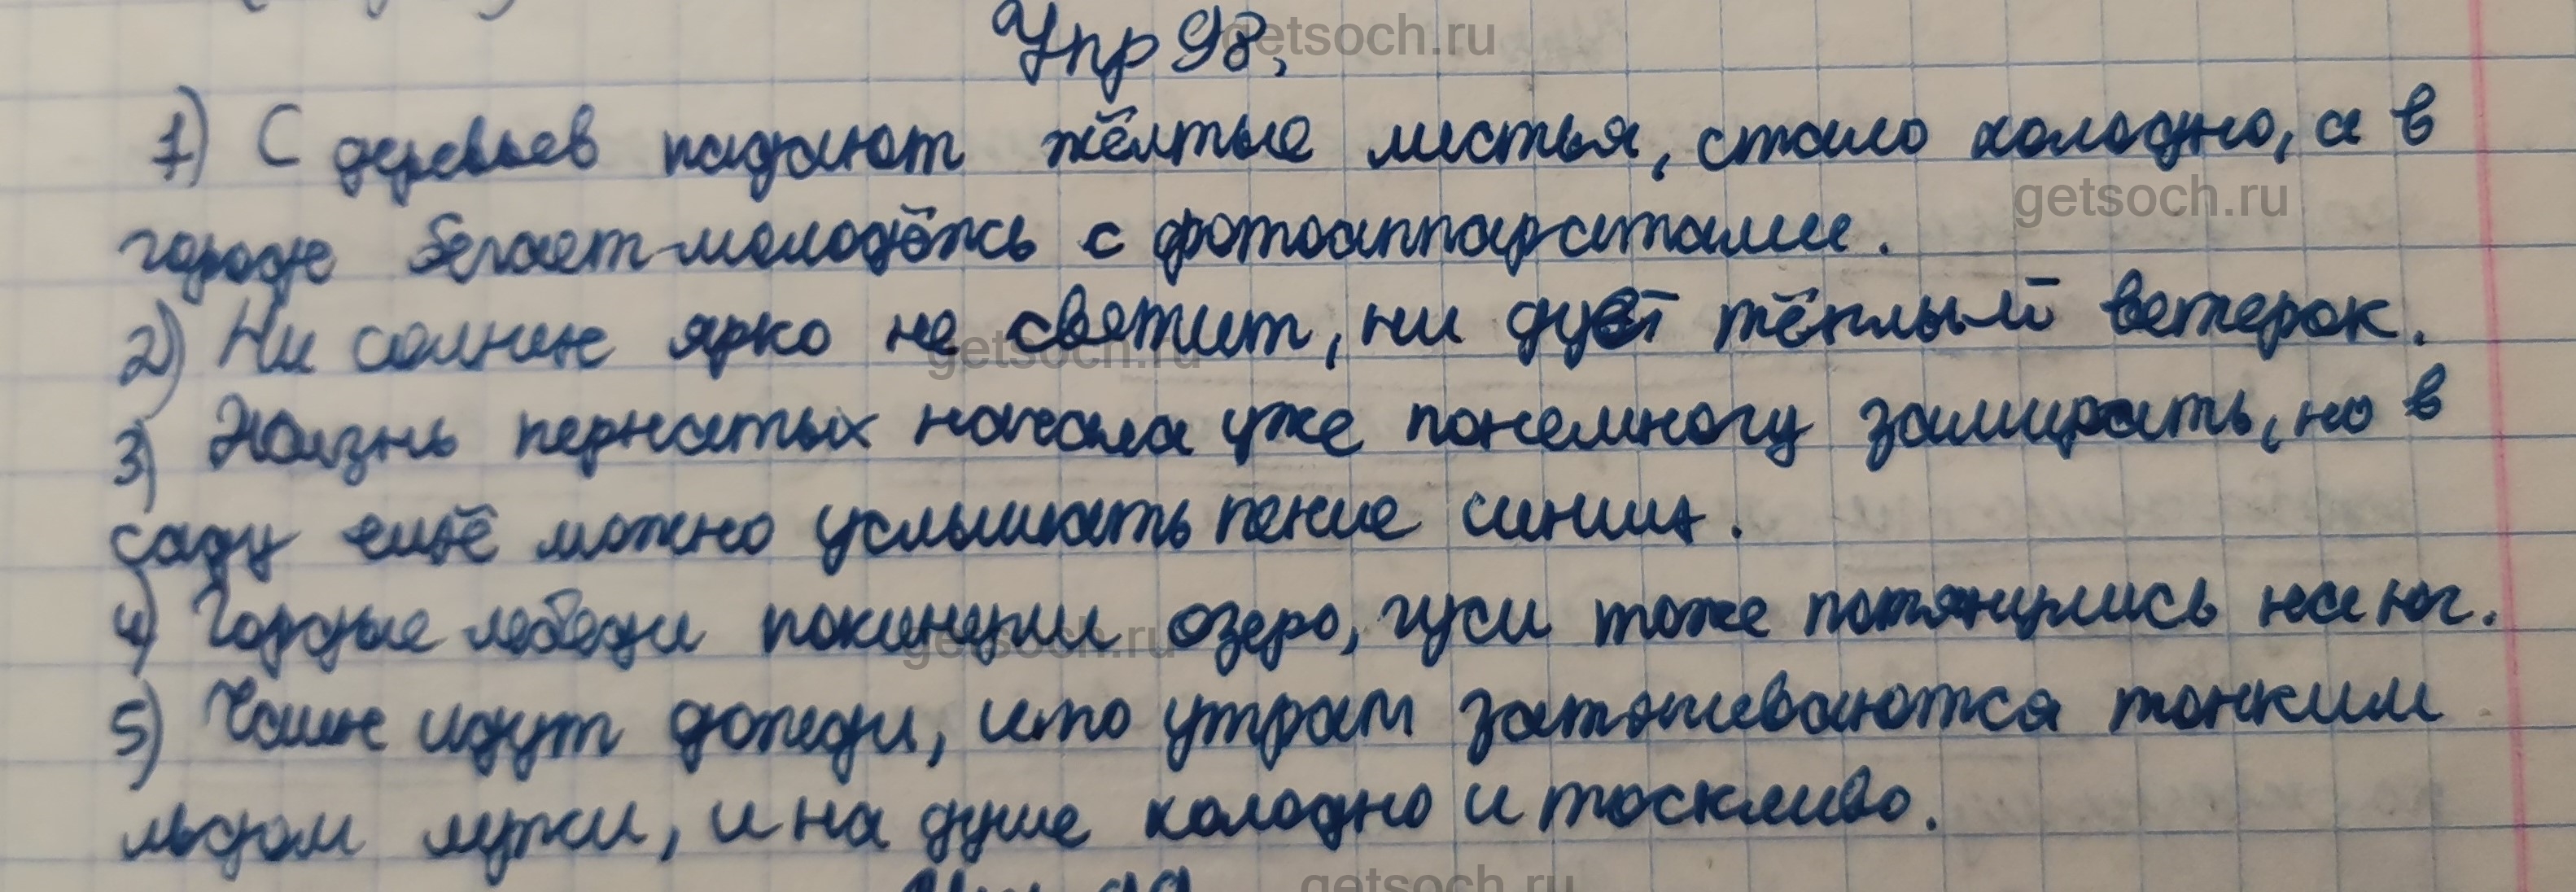 Упр 98,
getsoch.ru
1) С деревьев падают жёлтые листья, стало холодно, а в
getsoch.ru
городе бегает молодёжь с фотоаппаратами.
2) Ни солнце ярко не светит, ни дует тёплый ветерок.
getsoch.ru
3) Жизнь пернатых начала уже понемногу замирать, но в
саду ещё можно услышать пение синиц.
4) Гордые лебеди покинули озеро, гуси тоже потянулись на юг.
getsoch.ru
5) Чаще идут дожди, и по утрам затягиваются тонким
льдом лужи, и на душе холодно и тоскливо.
getsoch.ru